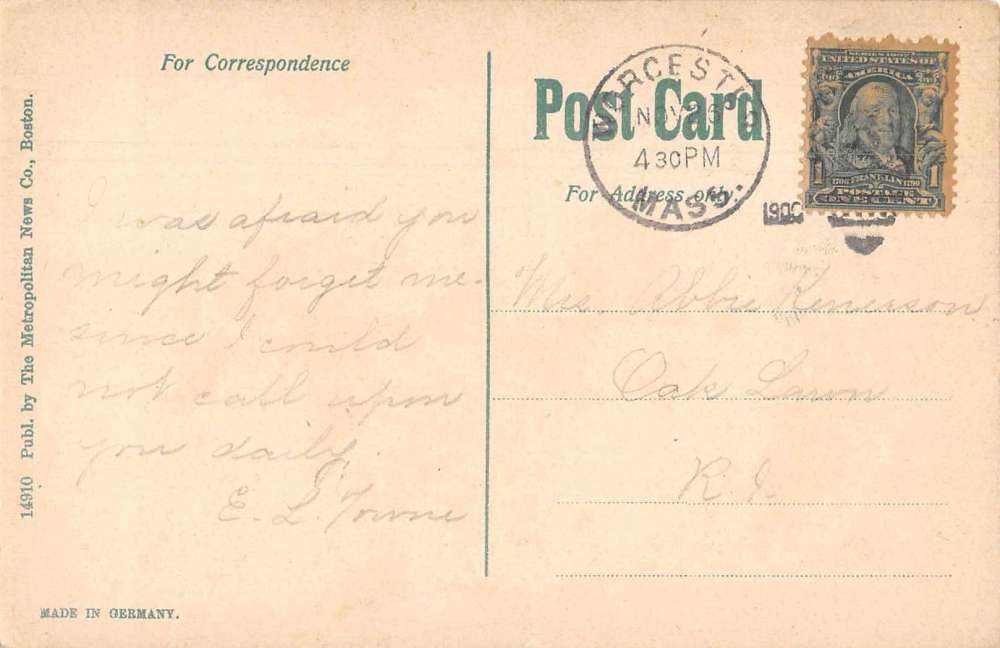 For Correspondence
Post Card
For Address only.
WORCESTER
NOV 26
4 30 PM
MASS.
SERIES 1902
UNITED STATES OF
AMERICA
1706 FRANKLIN 1790
POSTAGE
1 ONE CENT 1
I was afraid you
might forget me
since I could
not call upon
you daily.
E. L. Towne
Mrs. Abbie Kenerson
Oak Lawn
R.I.
14910 Publ. by The Metropolitan News Co., Boston.
MADE IN GERMANY.